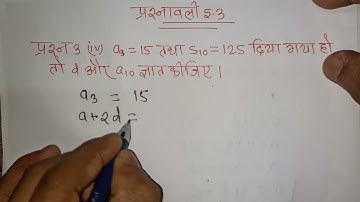 प्रश्नावली 5.3
प्रश्न 3 (iv) a₃ = 15 तथा S₁₀ = 125 दिया गया हो
तो d और a₁₀ ज्ञात कीजिए।
a₃ = 15
a+2d =